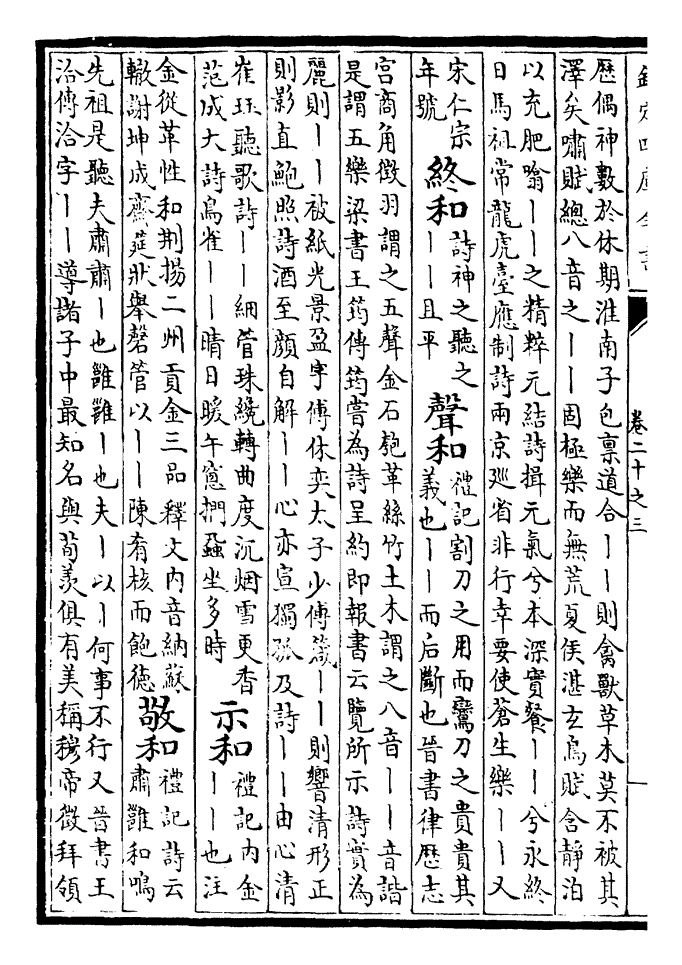 欽定四庫全書
卷二十之三
歷偶神數於休期淮南子包禀道合丨丨則禽獸草木莫不被其
澤矣嘯賦總八音之丨丨固極樂而無荒夏侯湛玄鳥賦含靜泊
以充肥噏丨丨之精粹元結詩揖元氣兮本深實餐丨丨兮永終
日馬祖常龍虎臺應制詩兩京廵省非行幸要使蒼生樂丨丨又
宋仁宗
年號
終和
詩神之聽之
丨丨且平
聲和
禮記割刀之用而鸞刀之貴貴其
義也丨丨而后斷也晉書律歷志
宮商角徵羽謂之五聲金石匏革絲竹土木謂之八音丨丨音諧
是謂五樂梁書王筠傳筠嘗為詩呈約即報書云覽所示詩實為
麗則丨丨被紙光景盈字傅休奕太子少傅箴丨丨則響清形正
則影直鮑照詩酒至顏自解丨丨心亦宣獨孤及詩丨丨由心清
崔珏聽歌詩丨丨細管珠纔轉曲度沉烟雪更香
范成大詩鳥雀丨丨晴日暖午窻捫蝨坐多時
示和
禮記内金
丨丨也注
金從革性和荆揚二州貢金三品釋文内音納蘇
轍謝坤成齋筵狀舉磬管以丨丨陳肴核而飽徳
敬和
禮記詩云
肅雝和鳴
先祖是聽夫肅肅丨也雝雝丨也夫丨以丨何事不行又晉書王
洽傳洽字丨丨導諸子中最知名與荀羨俱有美稱穆帝徵拜領